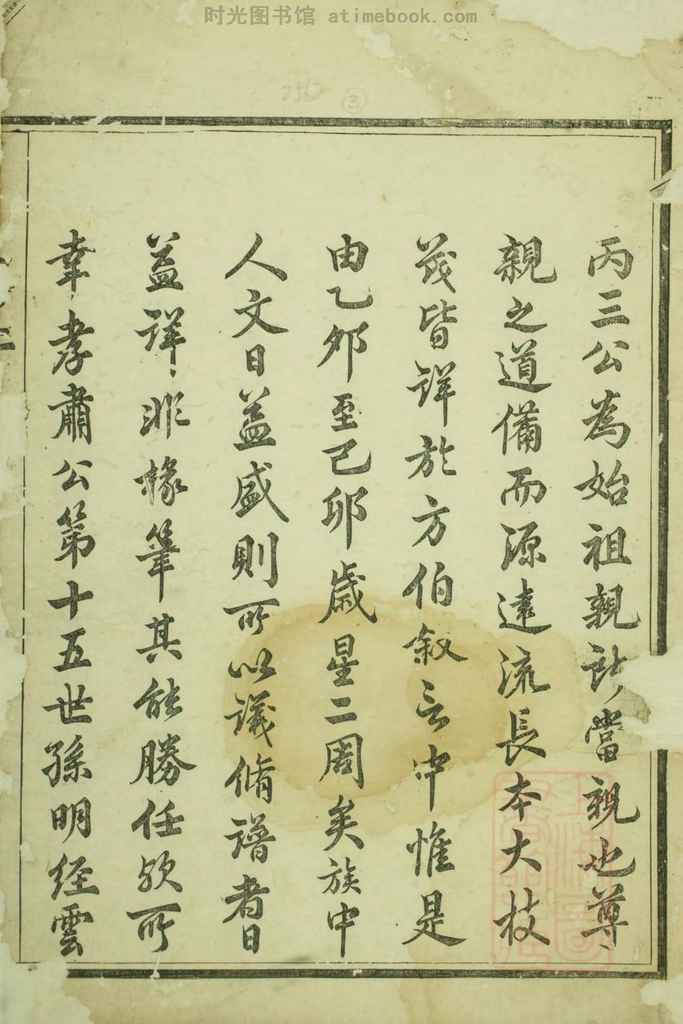 时光图书馆 atimebook.com
丙三公為始祖親許當親也尊
親之道備而源遠流長本大枝
茂皆詳於方伯叙言中惟是
由乙卯至己卯歲星二周矣族中
人文日益盛則所以議脩譜者日
益詳非椽筆其能勝任欤所
幸孝肅公第十五世孫明經雲